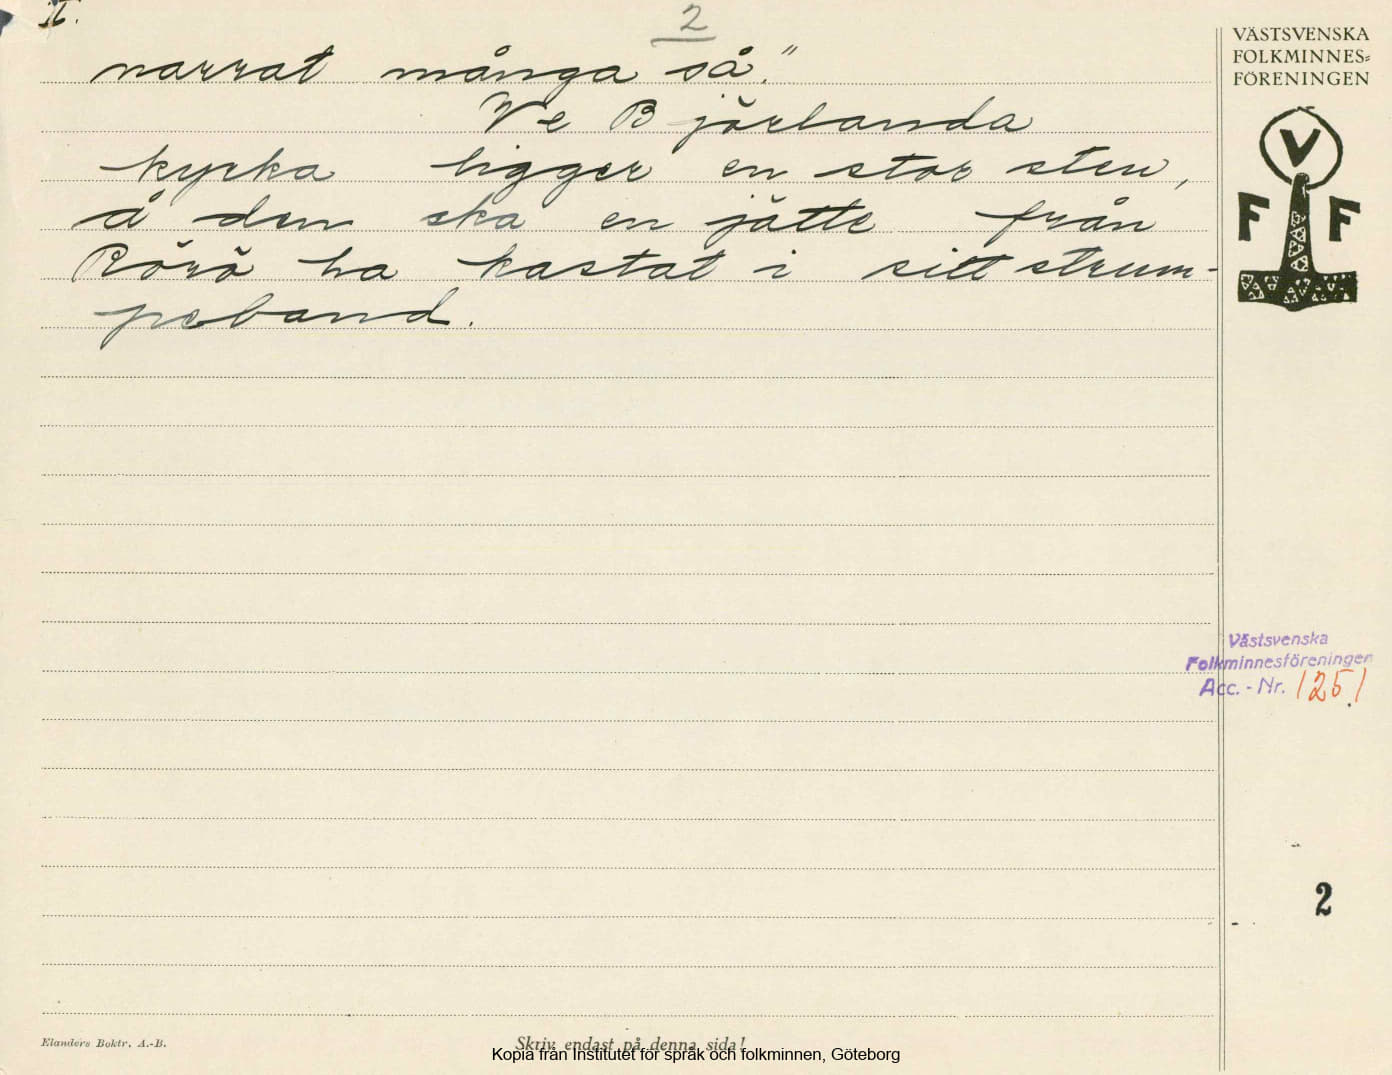 II.
2
narrat många så."
Ve Björlanda
kyrka ligger en stor sten,
å den ska en jätte från
Rörö ha kastat i sitt strum-
peband.
VÄSTSVENSKA
FOLKMINNES=
FÖRENINGEN
V
F F
Västsvenska
Folkminnesföreningen
Acc. - Nr. 1251
2
Elanders Boktr. A.-B.
Skriv endast på denna sida!
Kopia från Institutet för språk och folkminnen, Göteborg